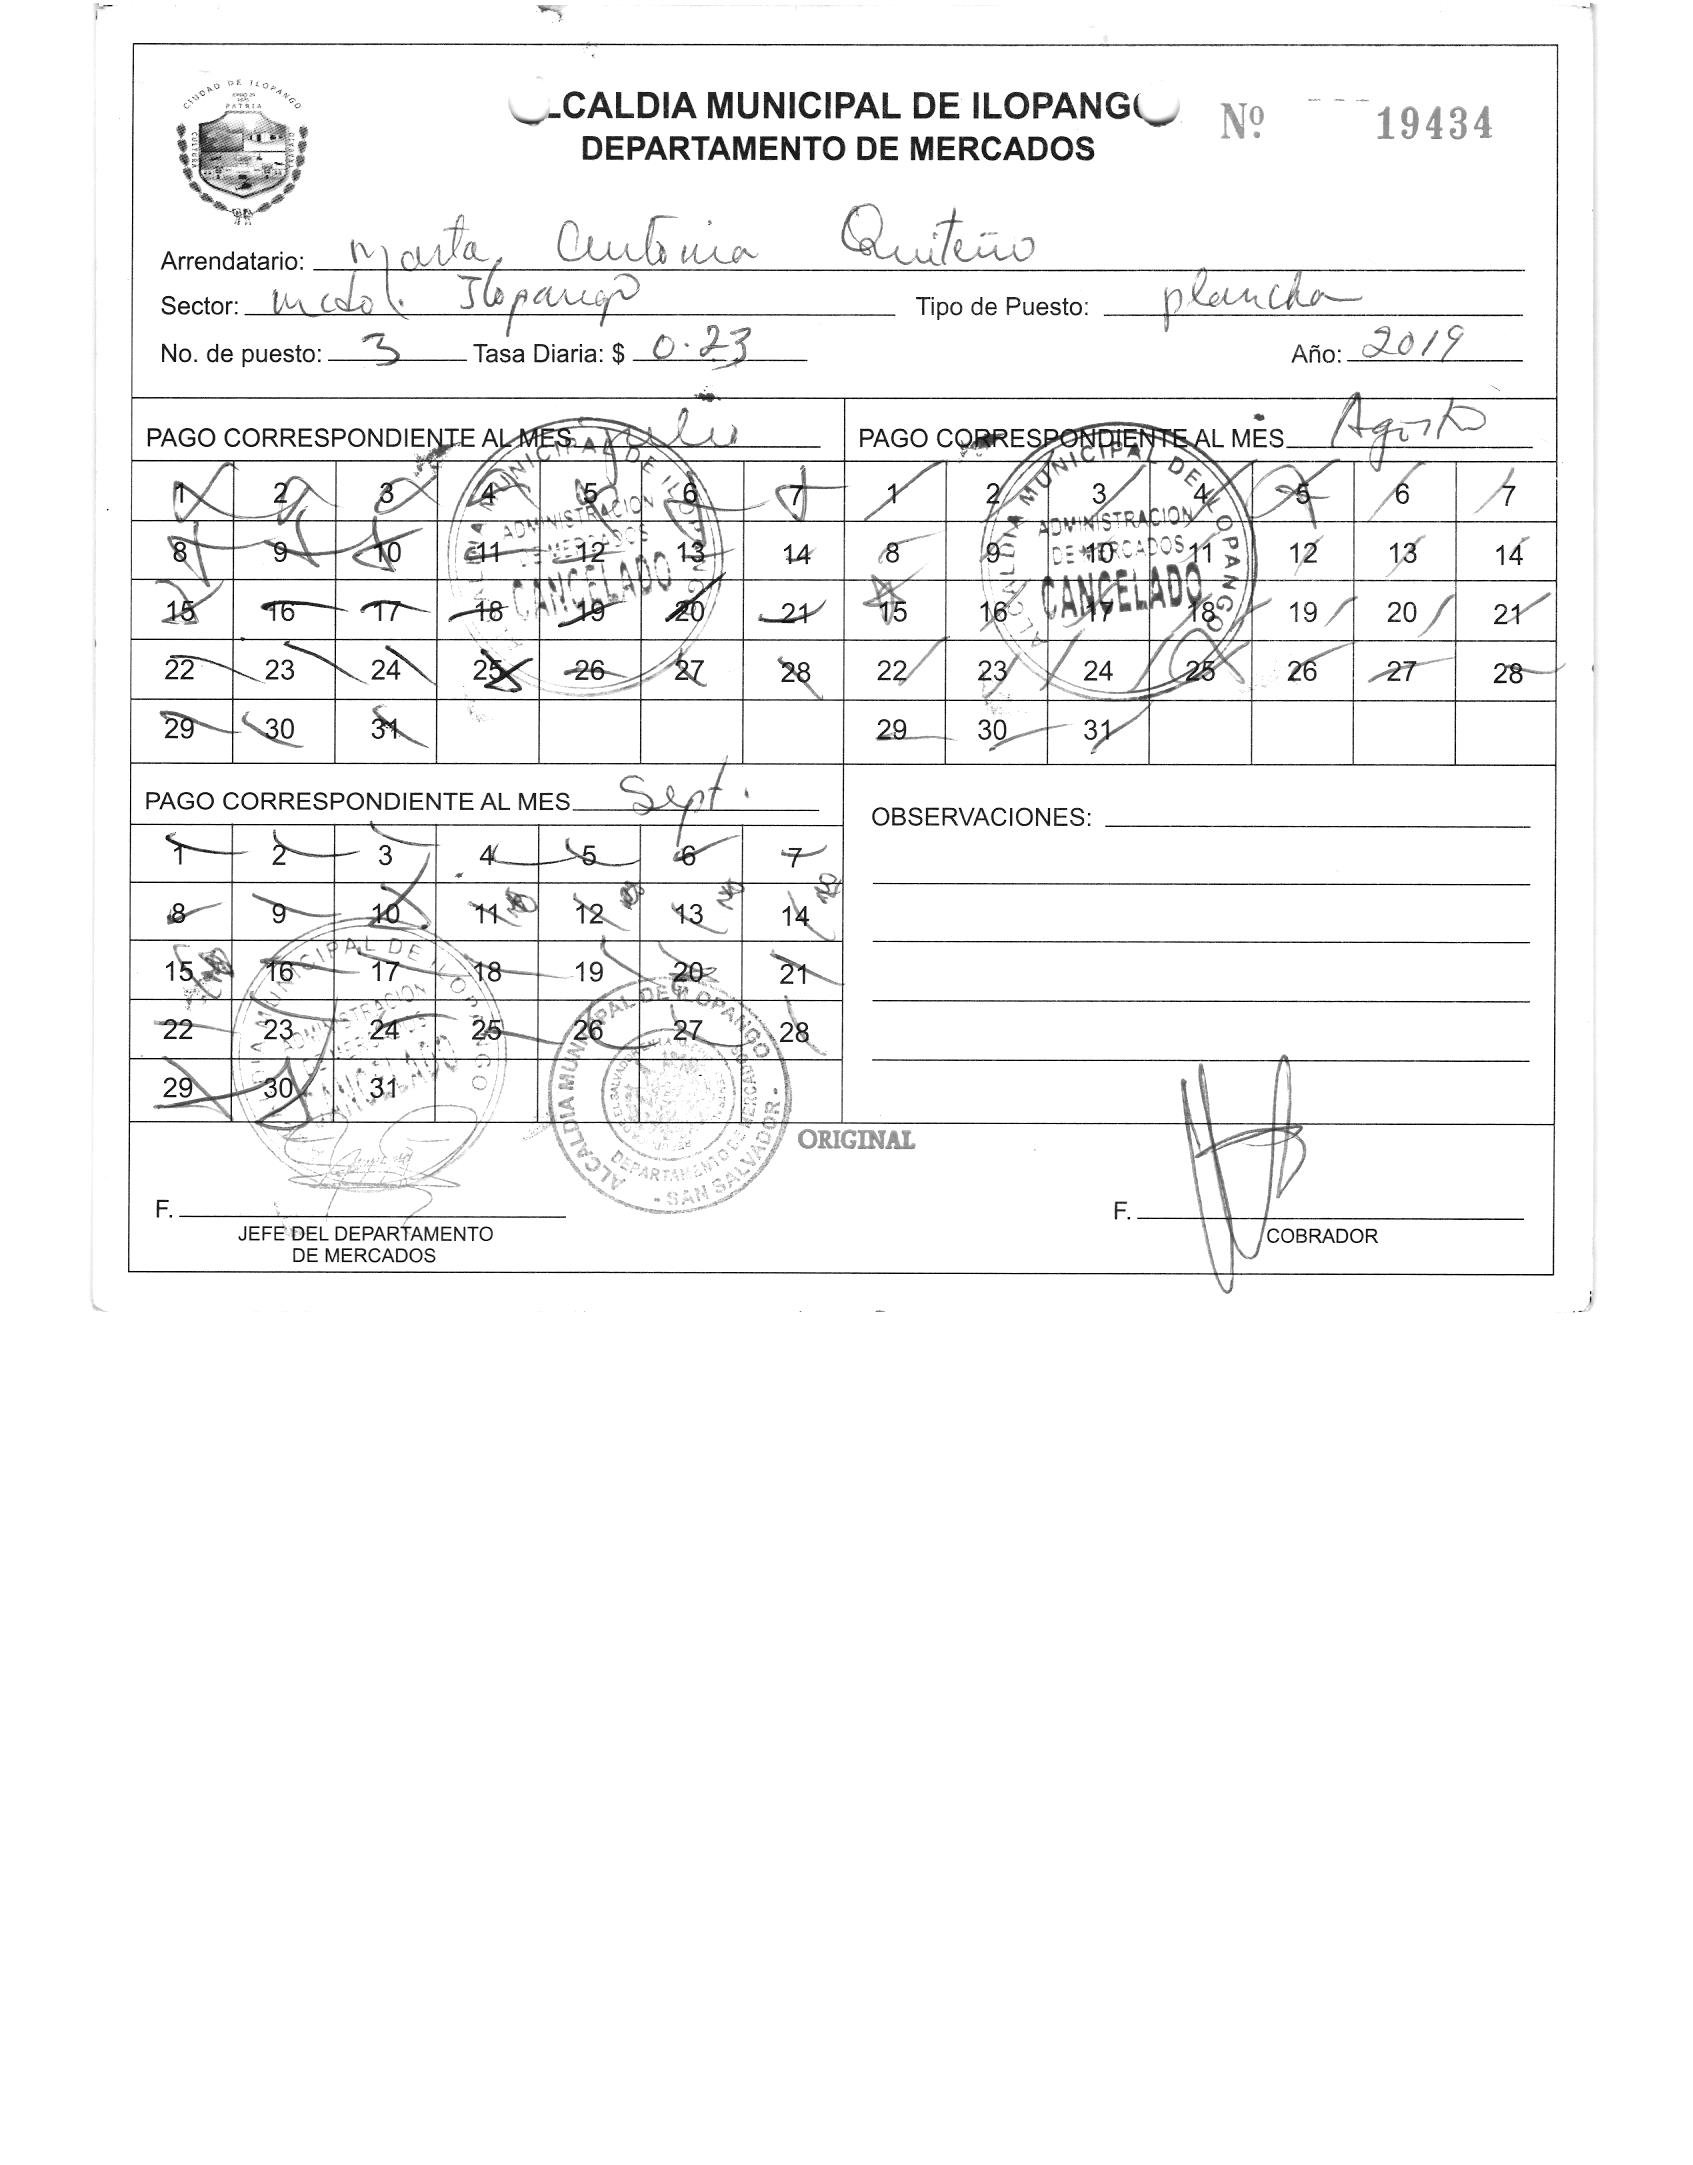 CIUDAD DE ILOPANGO
PATRIA
CULTURA
LCALDIA MUNICIPAL DE ILOPANGO
Nº 19434
DEPARTAMENTO DE MERCADOS
Arrendatario: Marta Antonia Quiteño
Sector: mcdo. Ilopango Tipo de Puesto: plancha
No. de puesto: 3 Tasa Diaria: $ 0.23 Año: 2019
PAGO CORRESPONDIENTE AL MES Julio
1 2 3 4 5 6 7
8 9 10 11 12 13 14
15 16 17 18 19 20 21
22 23 24 25 26 27 28
29 30 31
ALCALDIA MUNICIPAL DE ILOPANGO
ADMINISTRACION
DE MERCADOS
CANCELADO
PAGO CORRESPONDIENTE AL MES Agosto
1 2 3 4 5 6 7
8 9 10 11 12 13 14
15 16 17 18 19 20 21
22 23 24 25 26 27 28
29 30 31
ALCALDIA MUNICIPAL DE ILOPANGO
ADMINISTRACION
DE MERCADOS
CANCELADO
PAGO CORRESPONDIENTE AL MES Sept.
1 2 3 4 5 6 7
8 9 10 11 12 13 14
15 16 17 18 19 20 21
22 23 24 25 26 27 28
29 30 31
ALCALDIA MUNICIPAL DE ILOPANGO
ADMINISTRACION
DE MERCADOS
CANCELADO
ALCALDIA MUNICIPAL DE ILOPANGO
DEPARTAMENTO DE MERCADOS
- SAN SALVADOR -
OBSERVACIONES:
ORIGINAL
F.
JEFE DEL DEPARTAMENTO
DE MERCADOS
F.
COBRADOR